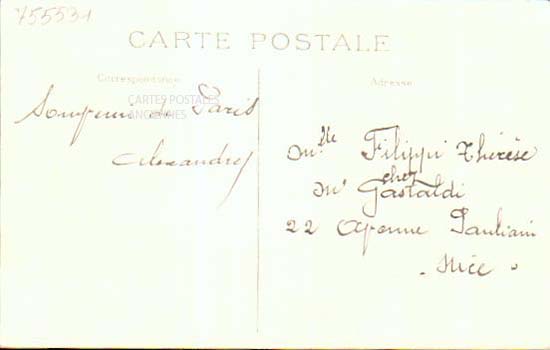 755531
CARTE POSTALE
Correspondance
Adresse
CARTES POSTALES
ANCIENNES
Souvenir de Paris
Alexandre
Mlle Filippi Thérèse
chez
Mr Gastaldi
22 Avenue Pauliani
Nice